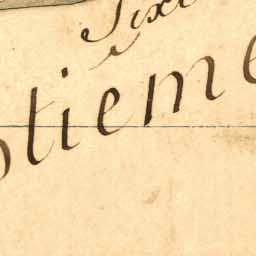 Sixi
ptieme